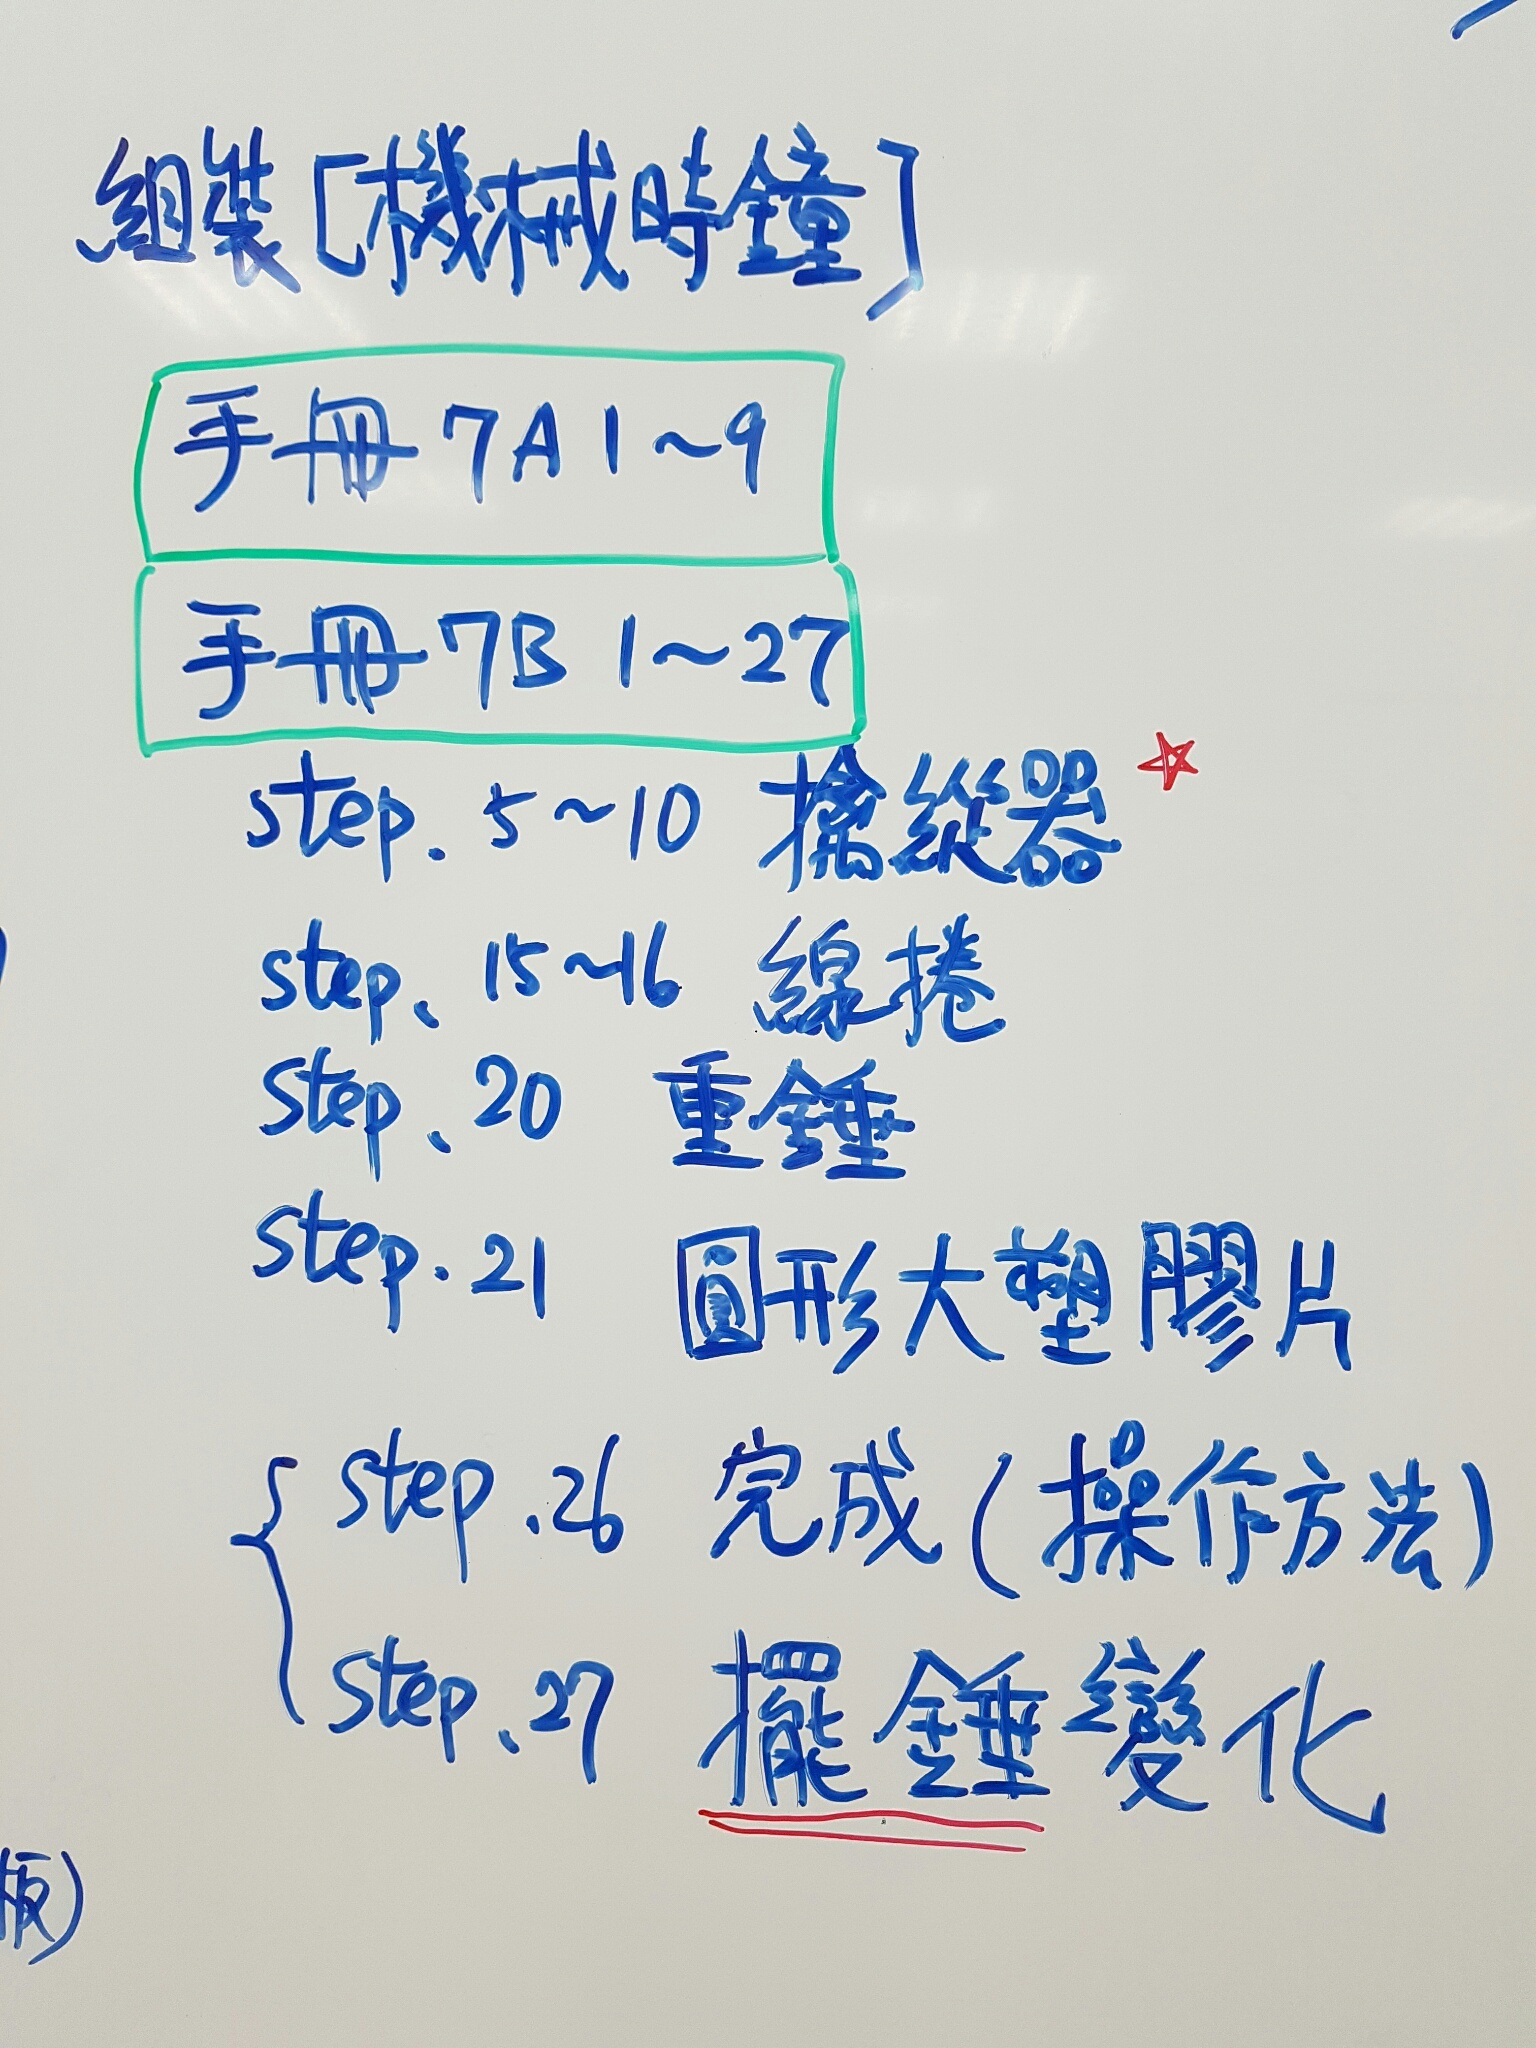 組裝[機械時鐘]
手冊 7A 1~9
手冊 7B 1~27
step. 5~10 擒縱器
step、15~16 線捲
step、20 重錘
step. 21 圓形大塑膠片
step .26 完成(操作方法)
step、27 擺錘變化
版)